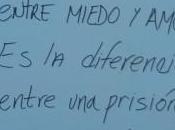 ENTRE MIEDO Y AM
Es la diferenci
entre una prisión